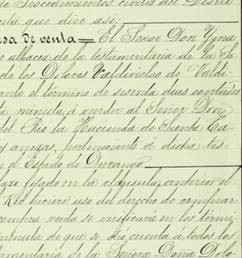 de Procedimientos civiles del Distri
to que dice así:
esa de venta = El Señor Don Ygna
o albacea de la testamentaria de la Se
de los Dolores Valdivielso de Valdi
ante el término de sesenta días contados
ta minuta á vender al Señor Don
del Rio la Hacienda de Santa Ca
y anexas, perteneciente á dicha tes
en el Estado de Durango.
lazo fijado en la cláusula anterior el
Rio hiciere uso del derecho de comprar
compra venta se verificará en los térmi
minuta de que se dió cuenta á todos los
amentaria de la Señora Doña Dolo